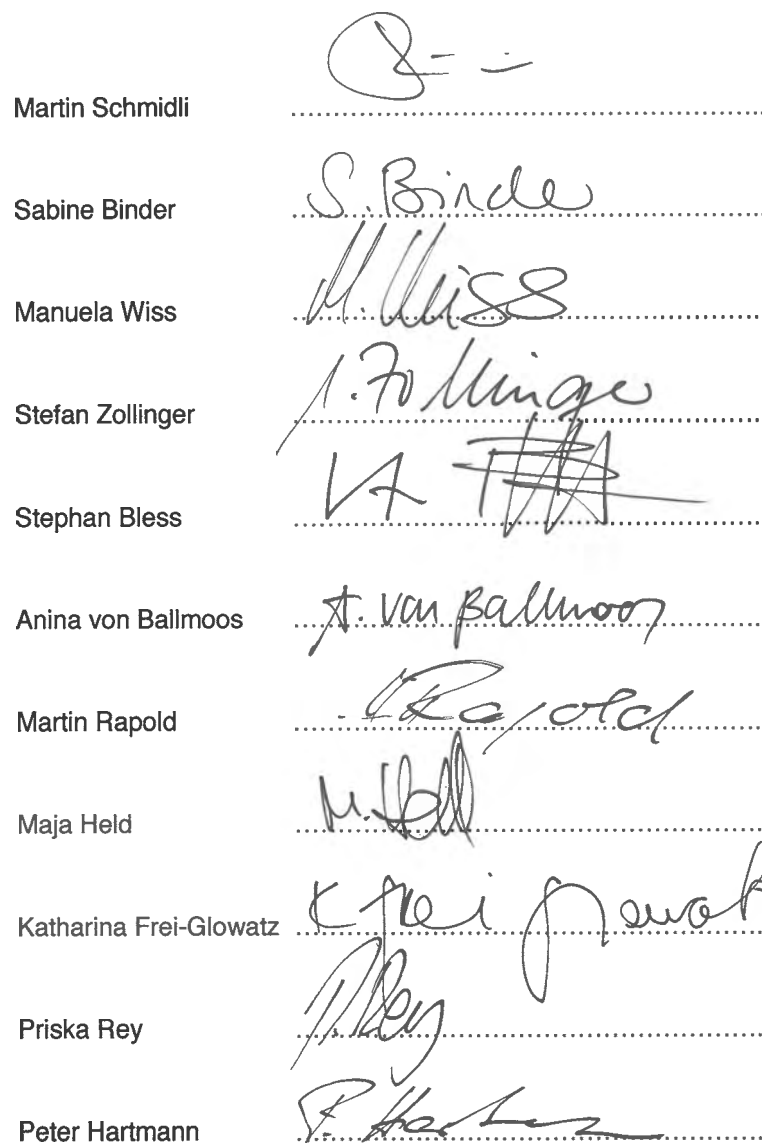 Martin Schmidli
Sabine Binder S. Binder
Manuela Wiss M. Wiss
Stefan Zollinger Zollinger
Stephan Bless
Anina von Ballmoos A. von Ballmoos
Martin Rapold Rapold
Maja Held M. Held
Katharina Frei-Glowatz K Frei
Priska Rey P. Rey
Peter Hartmann P. Hartmann